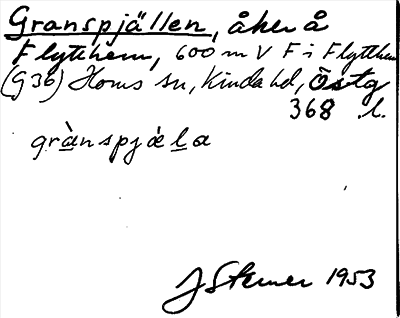 Granspjällen, åker å
Flytthem, 600 m V F i Flytthem
(G36) Horns sn, Kinda hd, Östg
368 l.
grànspjæla
J Sterner 1953